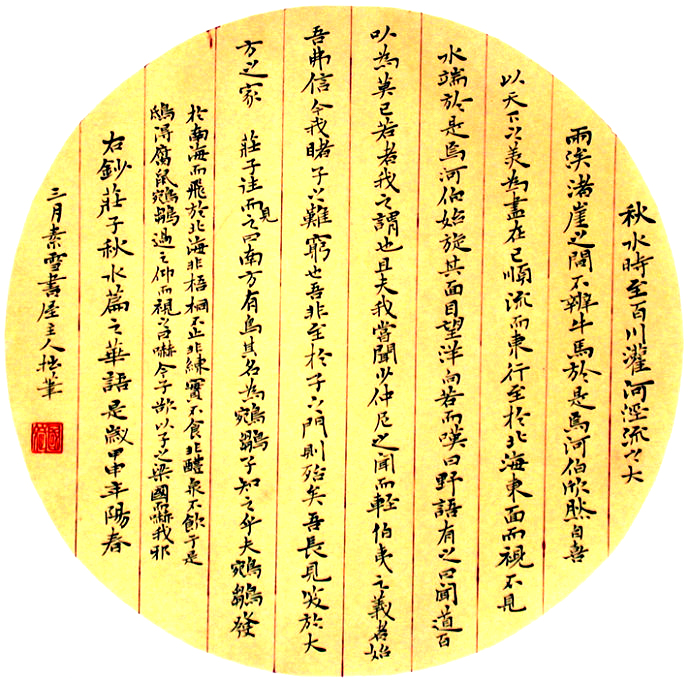 秋水時至百川灌河涇流之大
兩涘渚崖之間不辨牛馬於是焉河伯欣然自喜
以天下之美為盡在己順流而東行至於北海東面而視不見
水端於是焉河伯始旋其面目望洋向若而嘆曰野語有之曰聞道百
以為莫己若者我之謂也且夫我嘗聞少仲尼之聞而輕伯夷之義者始
吾弗信今我睹子之難窮也吾非至於子之門則殆矣吾長見笑於大
方之家 莊子往而見之曰南方有鳥其名為鵷鶵子知之乎夫鵷鶵發
於南海而飛於北海非梧桐不止非練實不食非醴泉不飲于是
鴟得腐鼠鵷鶵過之仰而視之曰嚇今子欲以子之梁國而嚇我邪
右鈔莊子秋水篇之華語是歲甲申年陽春
三月素雪書屋主人拙筆